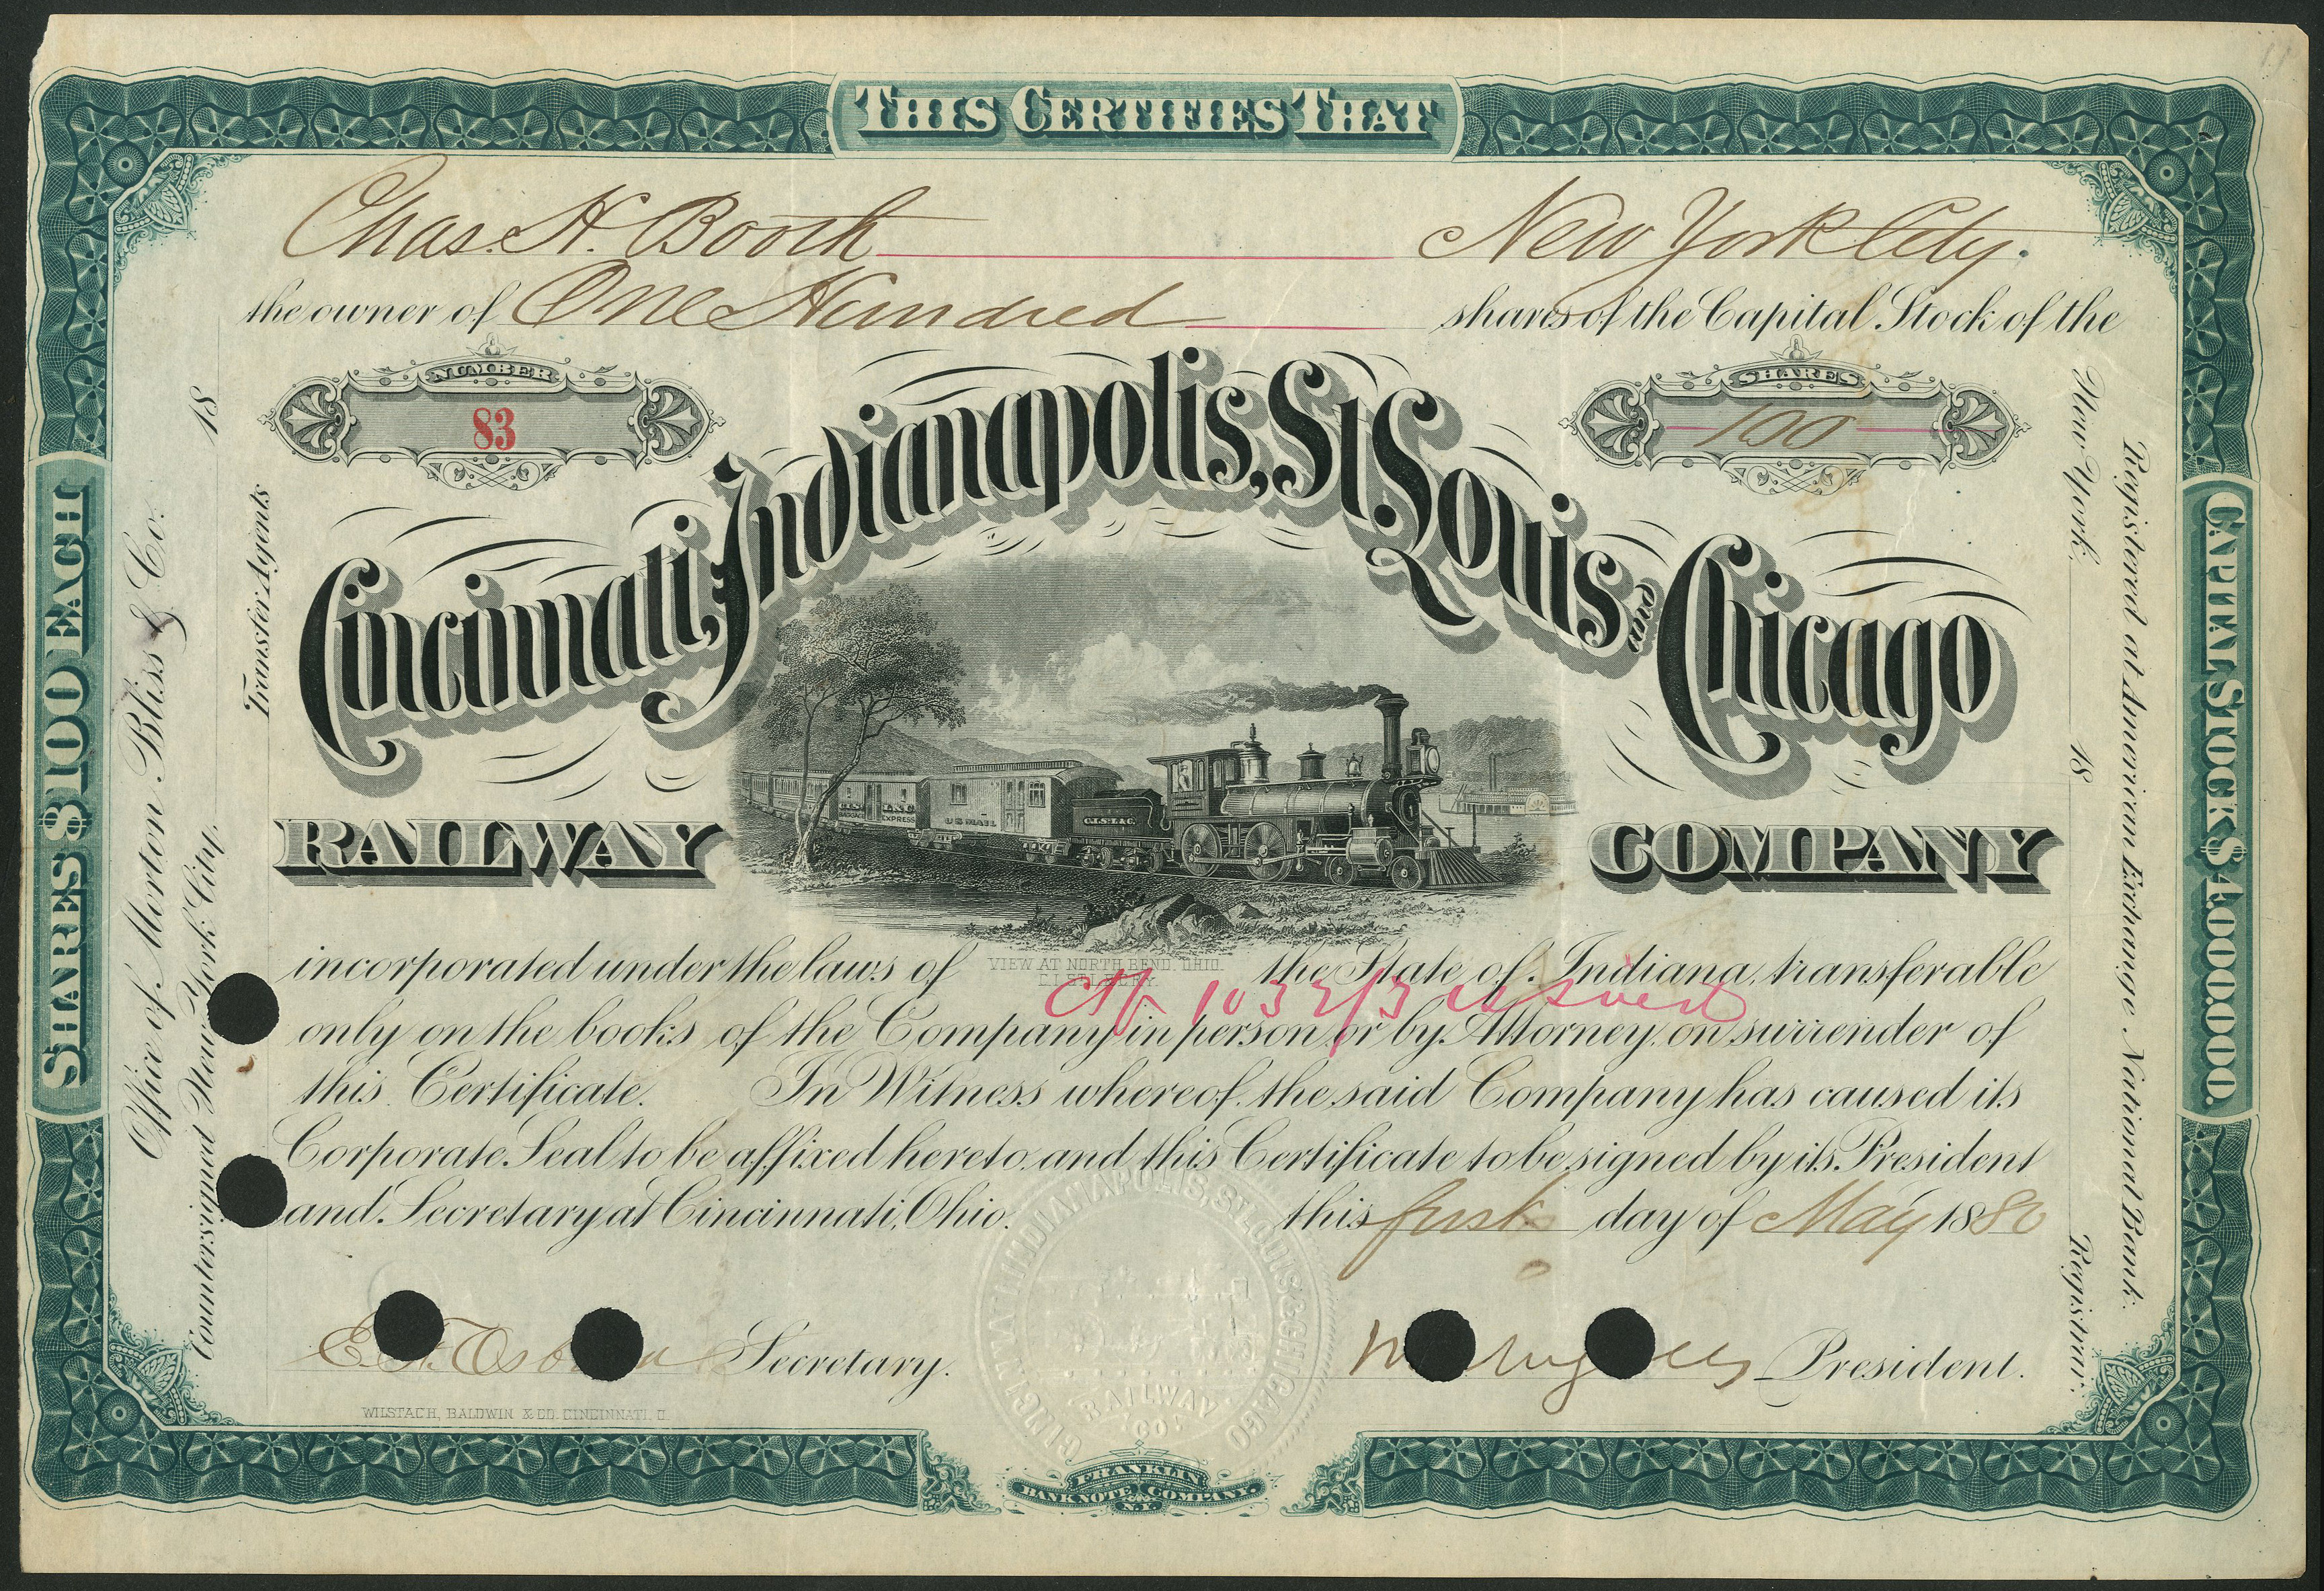 THIS CERTIFIES THAT
Chas. H. Booth New York City.
the owner of One Hundred shares of the Capital Stock of the
NUMBER
83
SHARES
100
Cincinnati, Indianapolis, St Louis and Chicago
RAILWAY COMPANY
C.I.ST.L.&C.
BAGGAGE EXPRESS
U S MAIL
C.I.ST.L.& C.
VIEW AT NORTH BEND, OHIO.
incorporated under the laws of the State of Indiana, transferable
only on the books of the Company in person or by Attorney, on surrender of
this Certificate. In Witness whereof, the said Company has caused its
Corporate Seal to be affixed hereto, and this Certificate to be signed by its President
and Secretary at Cincinnati, Ohio. this first day of May 1880
Secretary.
President.
WILSTACH, BALDWIN & CO. CINCINNATI, O.
CINCINNATI INDIANAPOLIS, ST. LOUIS & CHICAGO
RAILWAY
CO.
FRANKLIN
BANK NOTE COMPANY.
N.Y.
SHARES $100 EACH
Office of Morton Bliss & Co.
Countersigned New York City, 18
Transfer Agents
CAPITAL STOCK $4,000,000.
Registered at American Exchange National Bank.
New York, 18 Registrar.